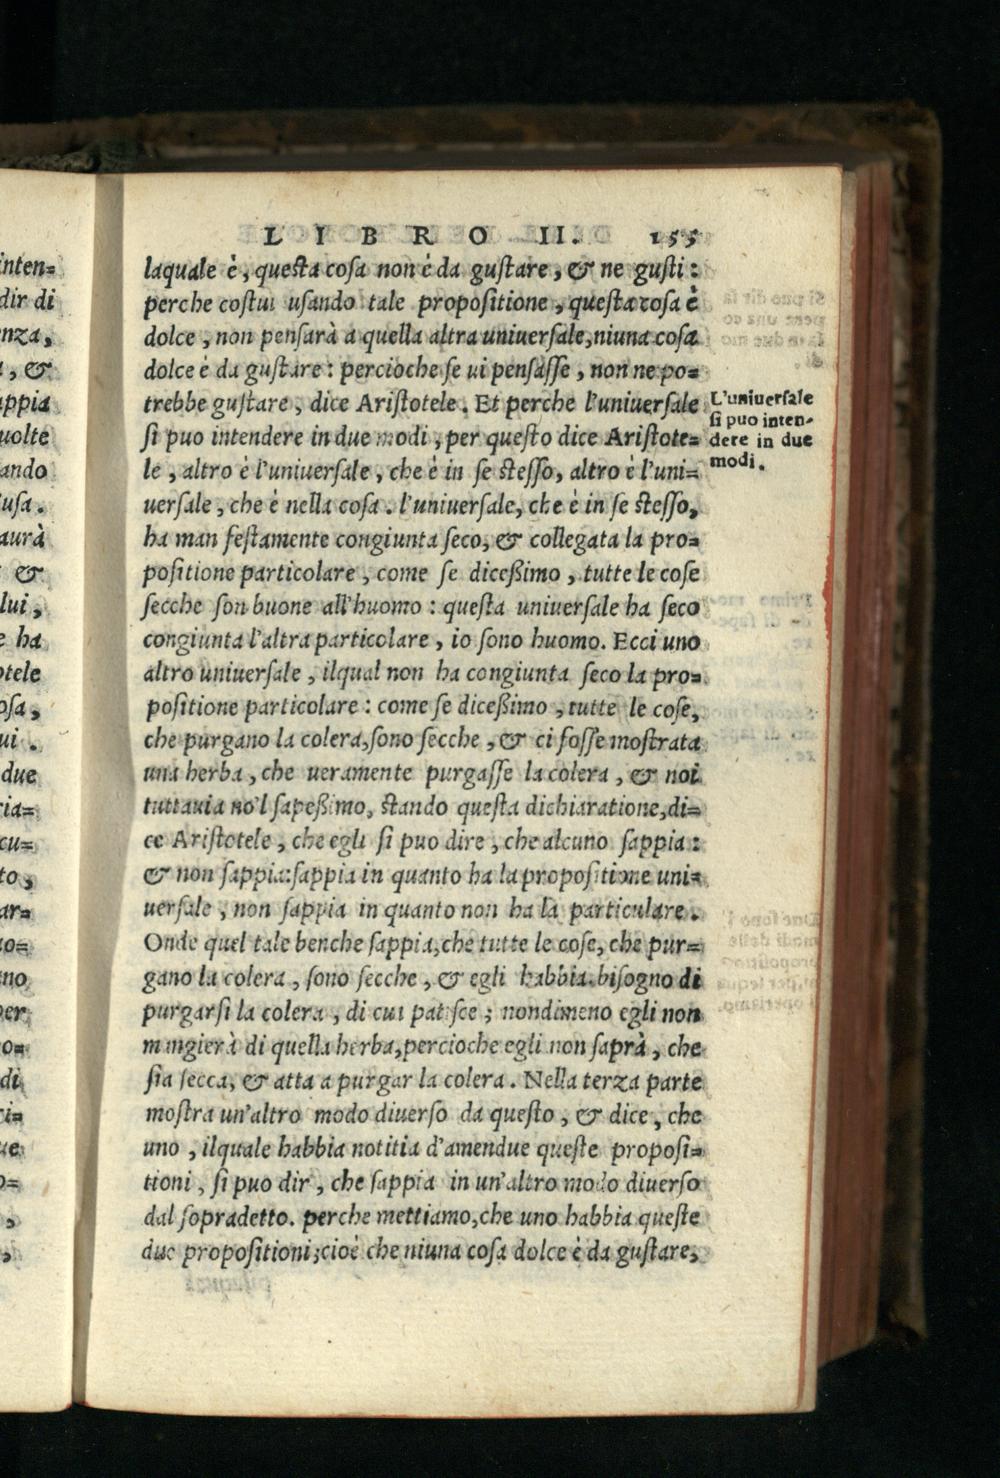 LIBRO II. 155
laquale è, questa cosa non è da gustare, & ne gusti:
perche costui usando tale propositione, questa cosa è
dolce, non pensarà a quella altra uniuersale, niuna cosa
dolce è da gustare: percioche se ui pensasse, non ne po=
trebbe gustare, dice Aristotele. Et perche l'uniuersale
si puo intendere in due modi, per questo dice Aristote=
le, altro è l'uniuersale, che è in se stesso, altro è l'uni=
uersale, che è nella cosa. l'uniuersale, che è in se stesso,
ha man festamente congiunta seco, & collegata la pro=
positione particolare, come se dicessimo, tutte le cose
secche son buone all'huomo: questa uniuersale ha seco
congiunta l'altra particolare, io sono huomo. Ecci uno
altro uniuersale, ilqual non ha congiunta seco la pro=
positione particolare: come se dicessimo, tutte le cose,
che purgano la colera, sono secche, & ci fosse mostrata
una herba, che ueramente purgasse la colera, & noi
tuttauia no'l sapessimo, stando questa dichiaratione, di=
ce Aristotele, che egli si puo dire, che alcuno sappia:
& non sappia: sappia in quanto ha la propositione uni=
uersale, non sappia in quanto non ha la particulare.
Onde quel tale benche sappia, che tutte le cose, che pur=
gano la colera, sono secche, & egli habbia bisogno di
purgarsi la colera, di cui patisce; nondimeno egli non
mangierà di quella herba, percioche egli non saprà, che
sia secca, & atta a purgar la colera. Nella terza parte
mostra un'altro modo diuerso da questo, & dice, che
uno, ilquale habbia notitia d'amendue queste proposi=
tioni, si puo dir, che sappia in un'altro modo diuerso
dal sopradetto. perche mettiamo, che uno habbia queste
due propositioni; cioè che niuna cosa dolce è da gustare,
L'uniuersale
si puo inten-
dere in due
modi.
inten=
dir di
nza,
, &
appia
uolte
ando
usa.
aurà
&
lui,
e ha
otele
osa,
ui.
due
ria=
cu=
to,
ar=
uo=
no
per
o=
di
ci=
ue
o=
,
,